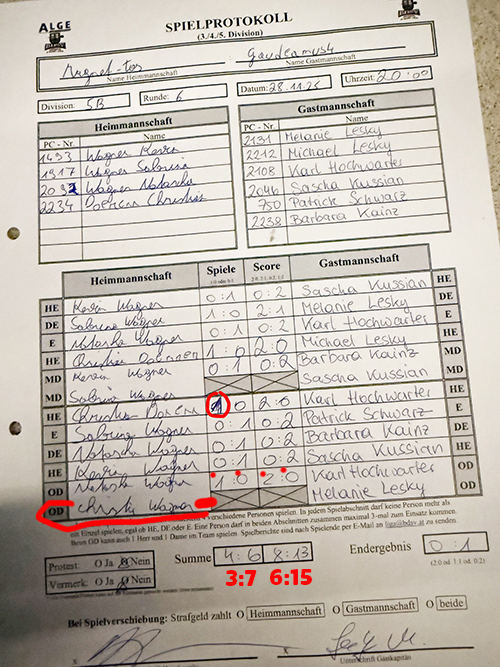 ALGE
SPIELPROTOKOLL
(3./4./5. Division)
Name Heimmannschaft
Name Gastmannschaft
Division: 5B Runde: 6 Datum: 28.11.25 Uhrzeit: 20:00
Heimmannschaft Gastmannschaft
PC - Nr. Name PC - Nr. Name
1493 Wagner Kevin 2131 Melanie Lesky
1917 Wagner Sabrina 2212 Michael Lesky
Wagner Natascha 2108 Karl Hochwarter
2234 Doencz Christian 2046 Sascha Kussian
750 Patrick Schwarz
2238 Barbara Kainz
Heimmannschaft Spiele Score Gastmannschaft
HE Kevin Wagner 0:1 0:2 Sascha Kussian HE
DE Sabrina Wagner 1:0 2:1 Melanie Lesky DE
E Natascha Wagner 0:1 0:2 Karl Hochwarter E
HE Christian 1:0 2:0 Michael Lesky HE
MD Kevin Wagner 0:1 0:2 Barbara Kainz MD
MD Sabrina Wagner Sascha Kussian MD
HE Christian 1 0 2:0 Karl Hochwarter HE
E Sabrina Wagner 0:1 0:2 Patrick Schwarz E
DE Natascha Wagner 0:1 0:2 Barbara Kainz DE
HE Kevin Wagner 0:1 0:2 Sascha Kussian HE
OD Natascha Wagner 1:0 2:0 Karl Hochwarter OD
OD Wagner Melanie Lesky OD
4 verschiedene Personen spielen. In jedem Spielabschnitt darf keine Person mehr als
ein Einzel spielen, egal ob HE, DE oder E. Eine Person darf in beiden Abschnitten zusammen maximal 3-mal zum Einsatz kommen.
Beim GD kann auch 1 Herr und 1 Dame im Team spielen. Spielberichte sind nach Spielende per E-Mail an liga@bdsv.at zu senden
Protest: O Ja O Nein Summe 4:6 8:13 Endergebnis 0:1
Vermerk: O Ja O Nein (2:0 od. 1:1 od. 0:2)
3:7 6:15
Bei Spielverschiebung: Strafgeld zahlt O Heimmannschaft O Gastmannschaft O beide
x x
Unterschrift Gastkapitän